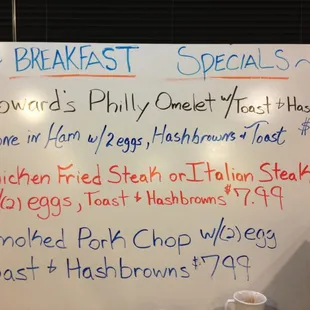 ~ BREAKFAST SPECIALS ~
oward's Philly Omelet w/Toast + Has
one in Ham w/2 eggs, Hashbrowns + Toast $
hicken Fried Steak or Italian Steak
/(2) eggs, Toast + Hashbrowns $7.99
moked Pork Chop w/(2) egg
oast + Hashbrowns $799